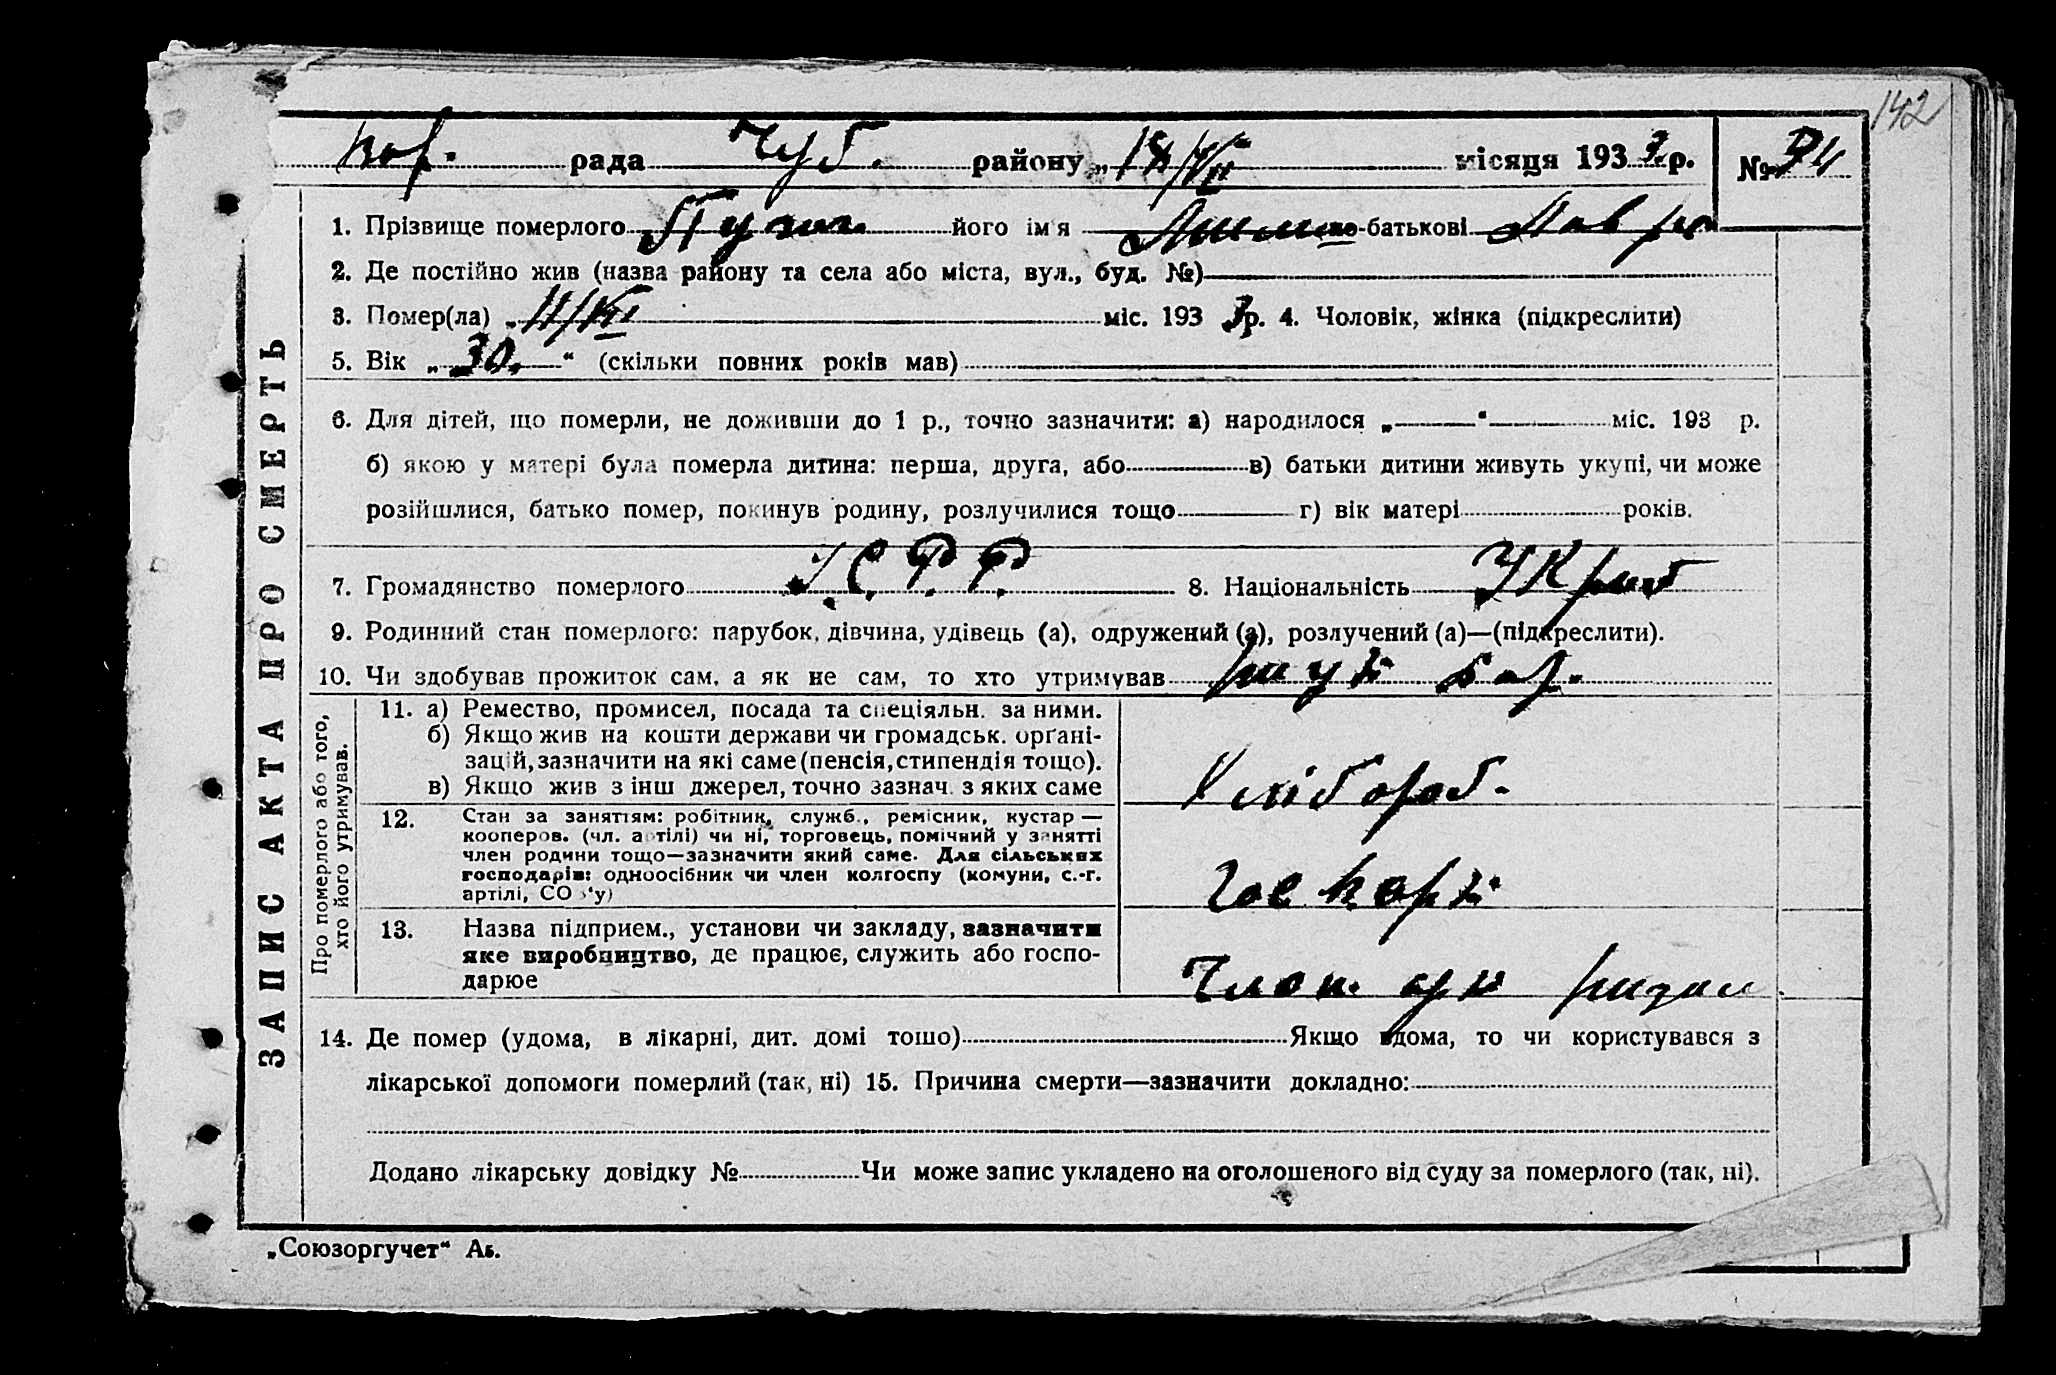 142
рада Чуб. району „ 18/VII місяця 1933 р. № 94
ЗАПИС АКТА ПРО СМЕРТЬ
1. Прізвище померлого його ім'я по-батькові
2. Де постійно жив (назва району та села або міста, вул., буд. №)
3. Помер(ла) „ 11/VII міс. 1933 р. 4. Чоловік, жінка (підкреслити)
5. Вік „ 30. “ (скільки повних років мав)
6. Для дітей, що померли, не доживши до 1 р., точно зазначити: а) народилося „ “ міс. 193 р.
б) якою у матері була померла дитина: перша, друга, або в) батьки дитини живуть укупі, чи може
розійшлися, батько помер, покинув родину, розлучилися тощо г) вік матері років.
7. Громадянство померлого У.С.Р.Р. 8. Національність
9. Родинний стан померлого: парубок, дівчина, удівець (а), одружений (а), розлучений (а)—(підкреслити).
10. Чи здобував прожиток сам, а як не сам, то хто утримував
Про померлого або того,
хто його утримував.
11. а) Ремество, промисел, посада та спеціяльн. за ними.
б) Якщо жив на кошти держави чи громадськ. органі-
зацій, зазначити на які саме (пенсія, стипендія тощо).
в) Якщо жив з інш джерел, точно зазнач. з яких саме
Хлібороб.
12. Стан за заняттям: робітник, служб., ремісник, кустар —
кооперов. (чл. артілі) чи ні, торговець, помічний у занятті
член родини тощо—зазначити який саме. Для сільських
господарів: одноосібник чи член колгоспу (комуни, с.-г.
артілі, СОЗ'у)
13. Назва підприєм., установи чи закладу, зазначити
яке виробництво, де працює, служить або госпо-
дарює
14. Де помер (удома, в лікарні, дит. домі тощо) Якщо вдома, то чи користувався з
лікарської допомоги померлий (так, ні) 15. Причина смерти—зазначити докладно:
Додано лікарську довідку № Чи може запис укладено на оголошеного від суду за померлого (так, ні).
„Союзоргучет“ Аб.